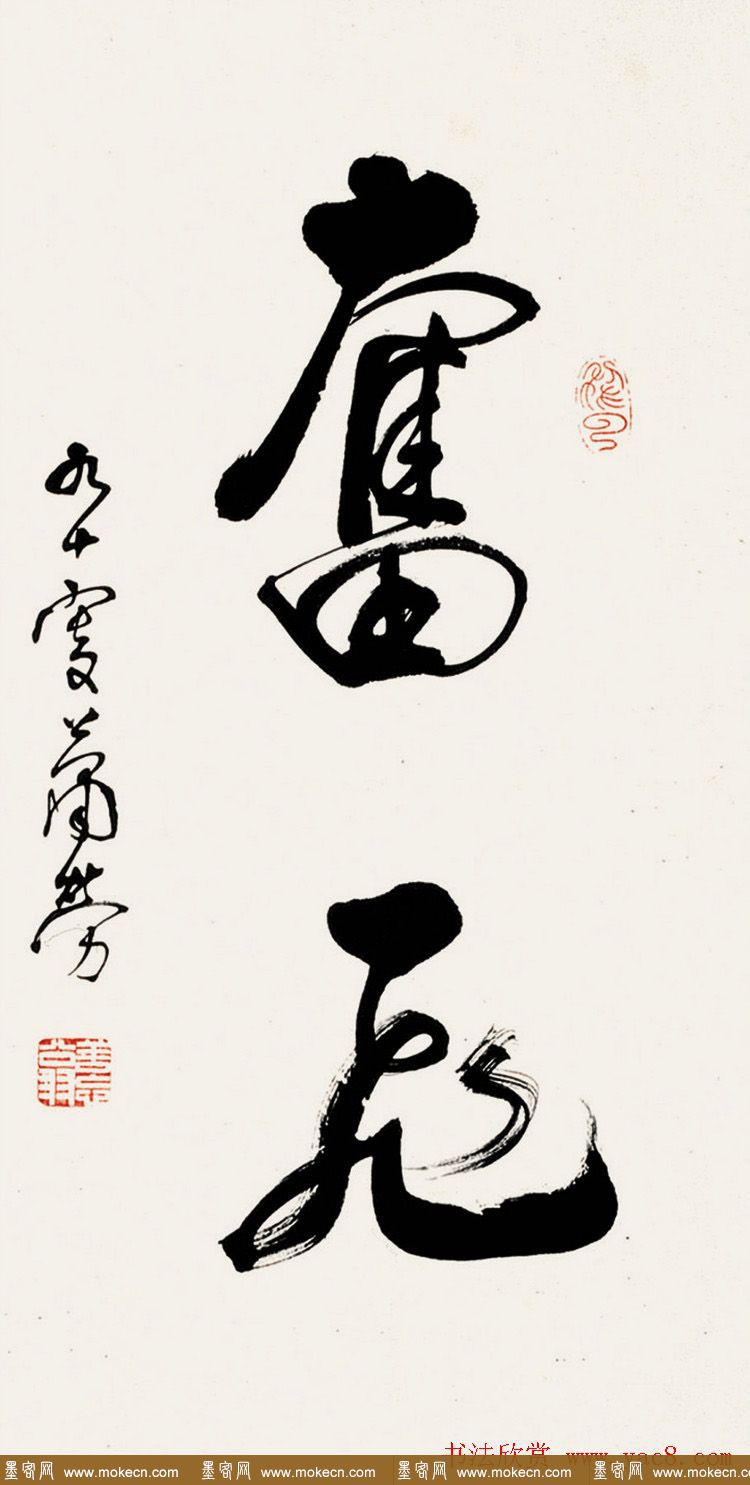 奮飛
九十叟蕭勞
书法欣赏 www.yac8.com
墨客网 www.mokecn.com 墨客网 www.mokecn.com 墨客网 www.mokecn.com 墨客网 www.mokecn